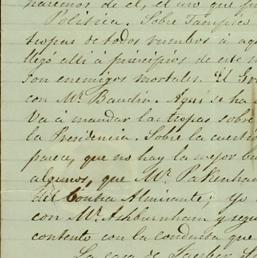 haremos de él, el uso que
Política. Sobre Tampico
tropas de todos rumbos á aqu
llegó allí á principios de este
son enemigos mortales. El Go
con Mr. Baudin. Aquí se ha
va á mandar las tropas sobre
la Presidencia. Sobre la cuesti
parece, que no hay la mejor bu
algunos, que Mr. Pakenham
del Contra Almirante; yo
con Mr. Ashburnham y segu
contento con la conducta que
La casa de